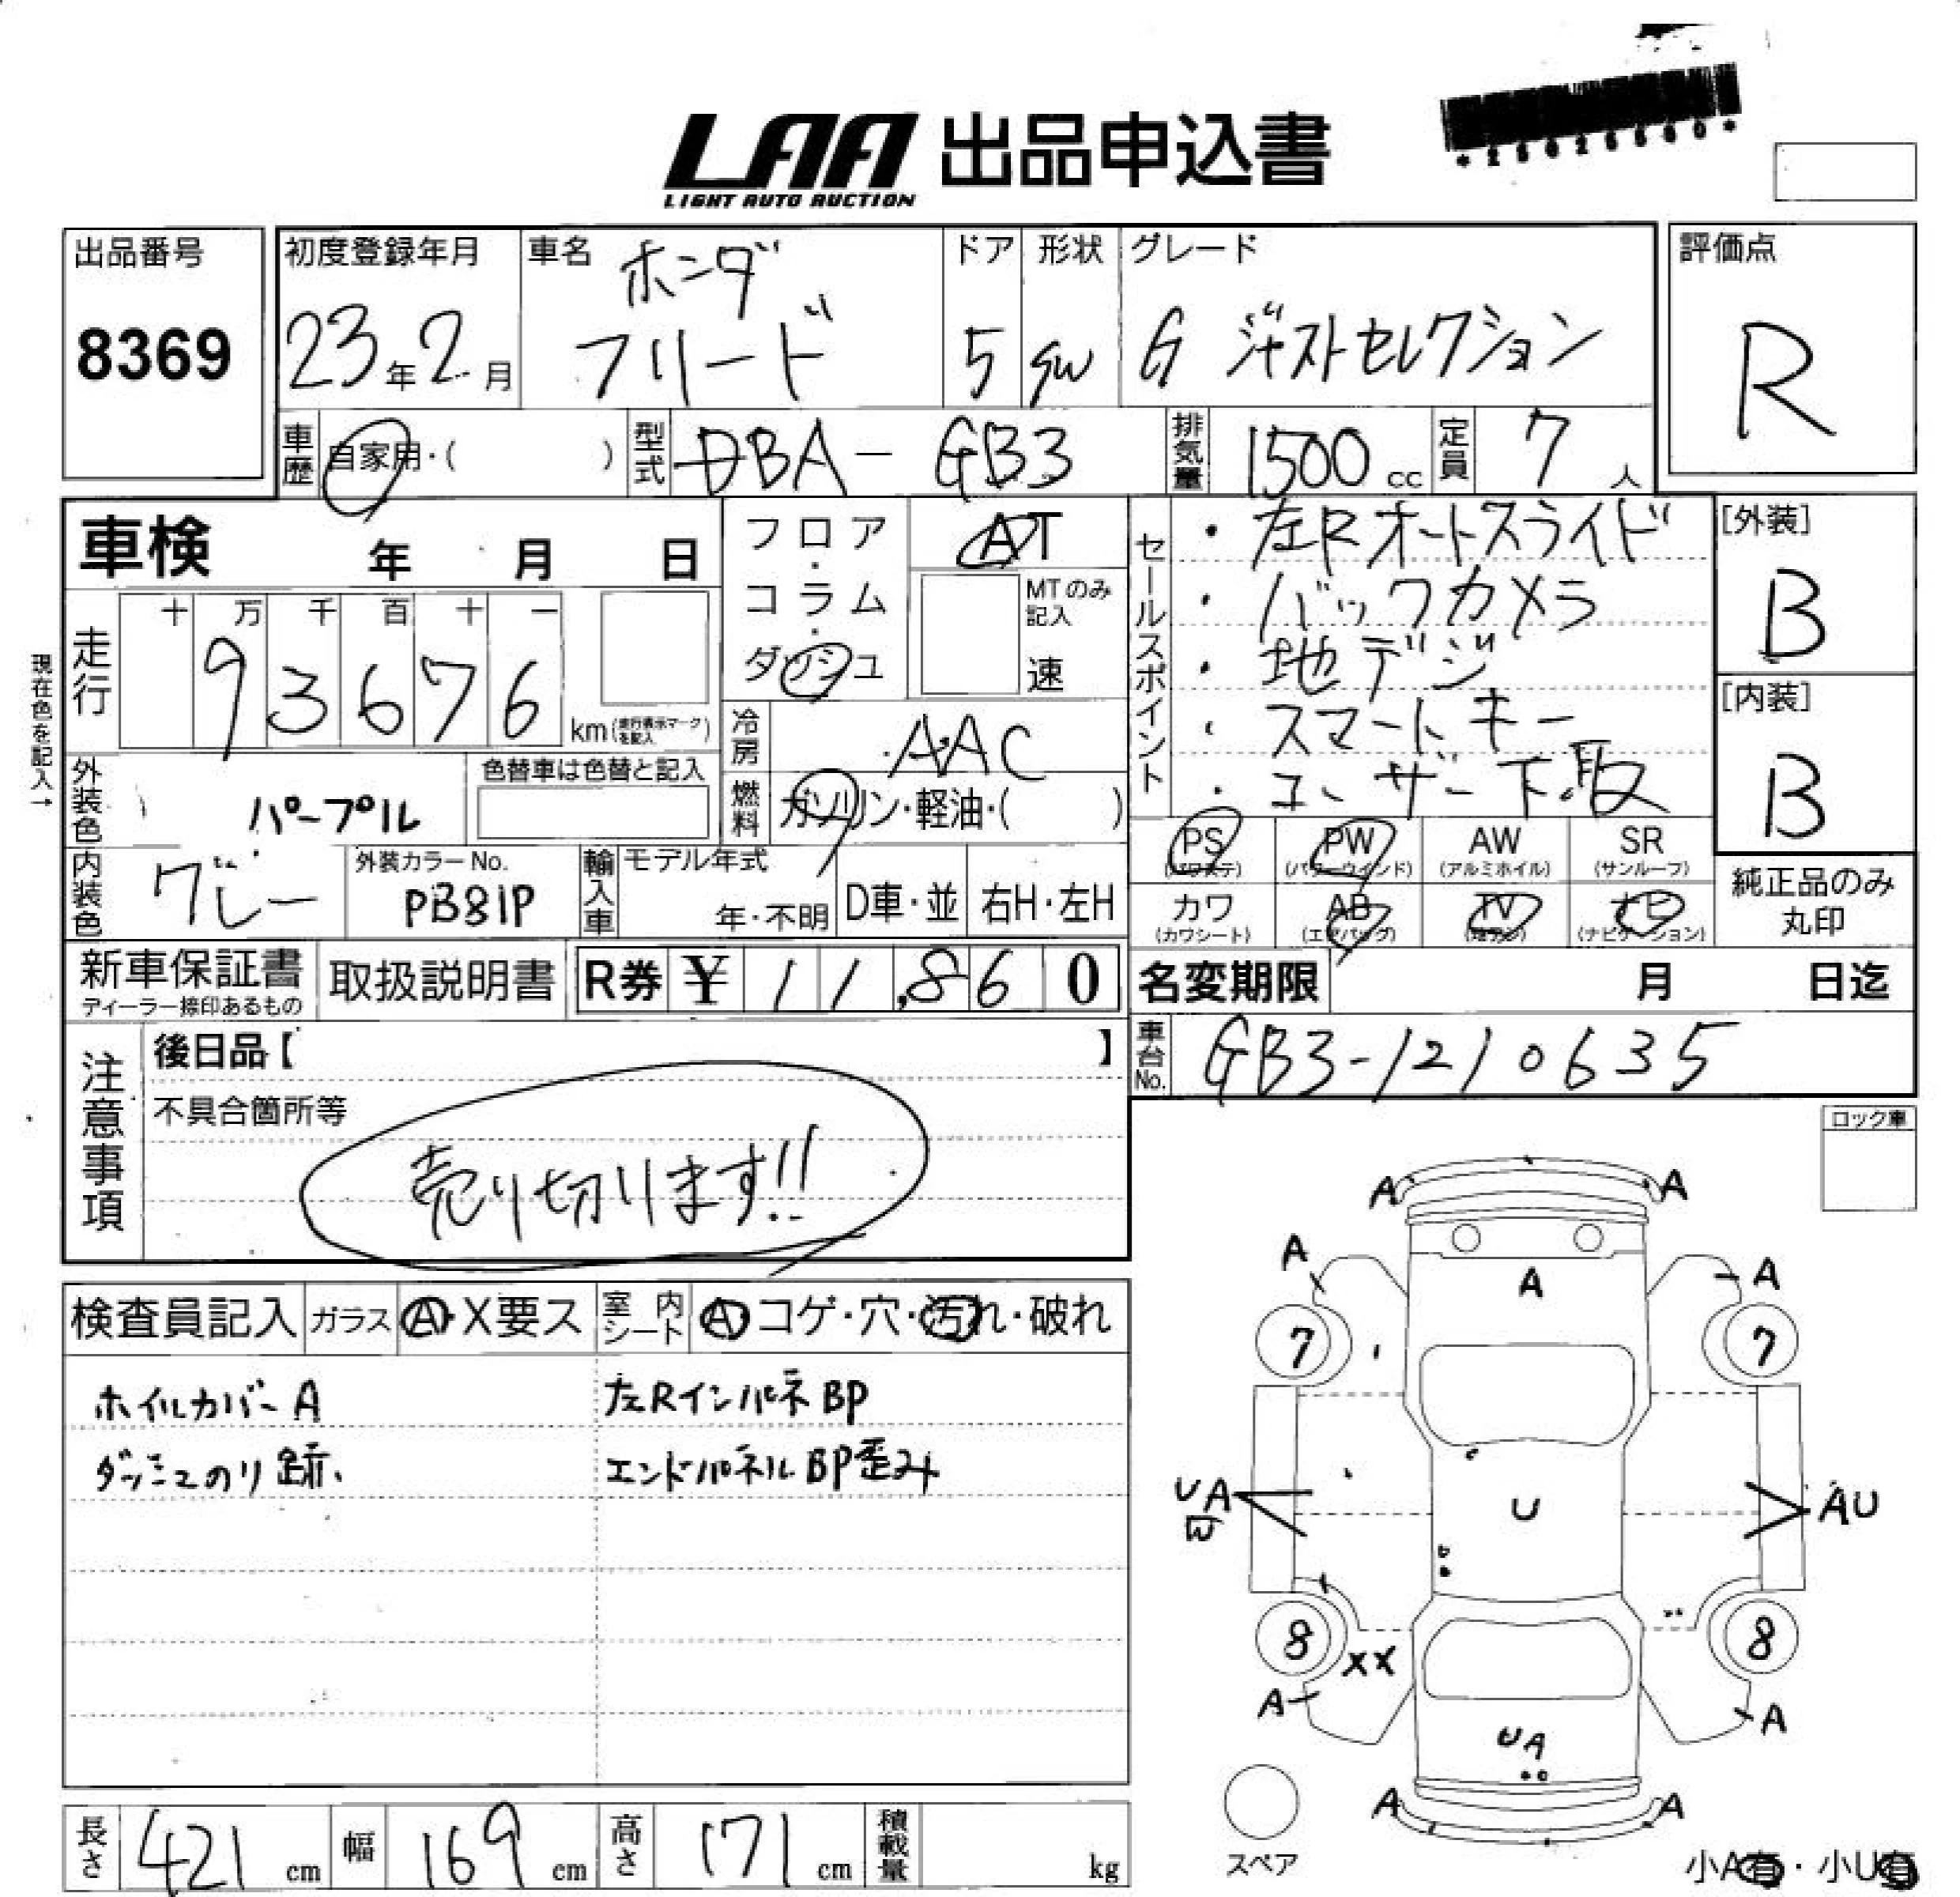 *25026500*
LAA 出品申込書
LIGHT AUTO AUCTION
出品番号
8369
初度登録年月
23年2月
車名
ホンダ
フリード
ドア
5
形状
SW
グレード
G ジャストセレクション
評価点
R
車歴
自家用・( )
型式
DBA-GB3
排気量
1500cc
定員
7人
車検 年 月 日
フロア・コラム・ダッシュ
AT
MTのみ記入
速
セールスポイント
・左Rオートスライド
・バックカメラ
・地デジ
・スマートキー
・ユーザー下取
[外装]
B
[内装]
B
現在色を記入→
走行
十万千百十一
93676
km(走行表示マークを記入)
冷房
AAC
燃料
ガソリン・軽油・( )
外装色
パープル
色替車は色替と記入
内装色
グレー
外装カラーNo.
PB81P
輸入車
モデル年式
年・不明
D車・並
右H・左H
PS
(パワステ)
PW
(パワーウインド)
AW
(アルミホイル)
SR
(サンルーフ)
カワ
(カワシート)
AB
(エアバッグ)
TV
(地デジ)
ナビ
(ナビゲーション)
純正品のみ
丸印
新車保証書
ディーラー捺印あるもの
取扱説明書
R券 ¥11,860
名変期限 月 日迄
車台No.
GB3-1210635
注意事項
後日品【 】
不具合箇所等
売り切ります!!
ロック車
検査員記入
ガラス
A・X要ス
室内シート
A・コゲ・穴・汚れ・破れ
ホイルカバーA
左RインパネBP
ダッシュのり跡、
エンドパネルBP歪み
A A
A A
A
7 7
UA
AU
U
8 8
XX
A A
UA
A A
スペア
小A有・小U有
長さ
421cm
幅
169cm
高さ
171cm
積載量
kg